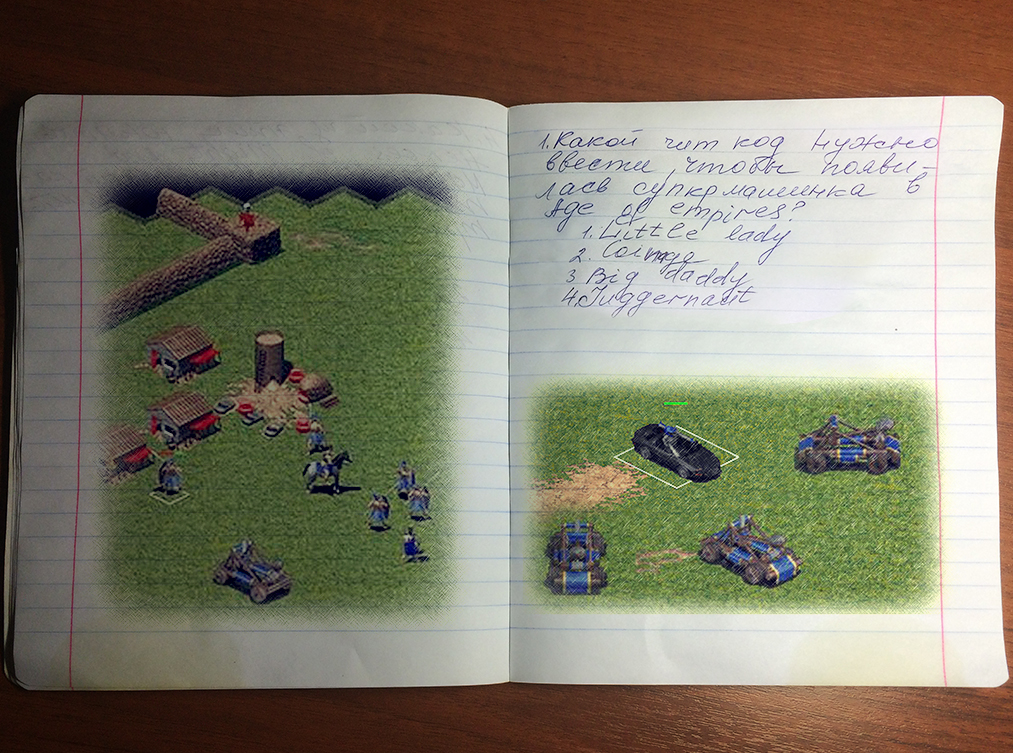 1. Какой чит код нужно
ввести, чтобы появи-
лась супермашинка в
Age of empires?
1. Little lady
2. Coinage
3 Big daddy
4. Juggernaut